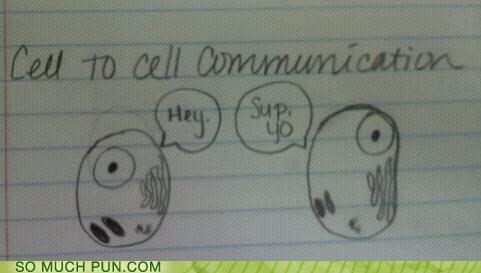 Cell to cell communication
Hey.
Sup,
yo
SO MUCH PUN.COM